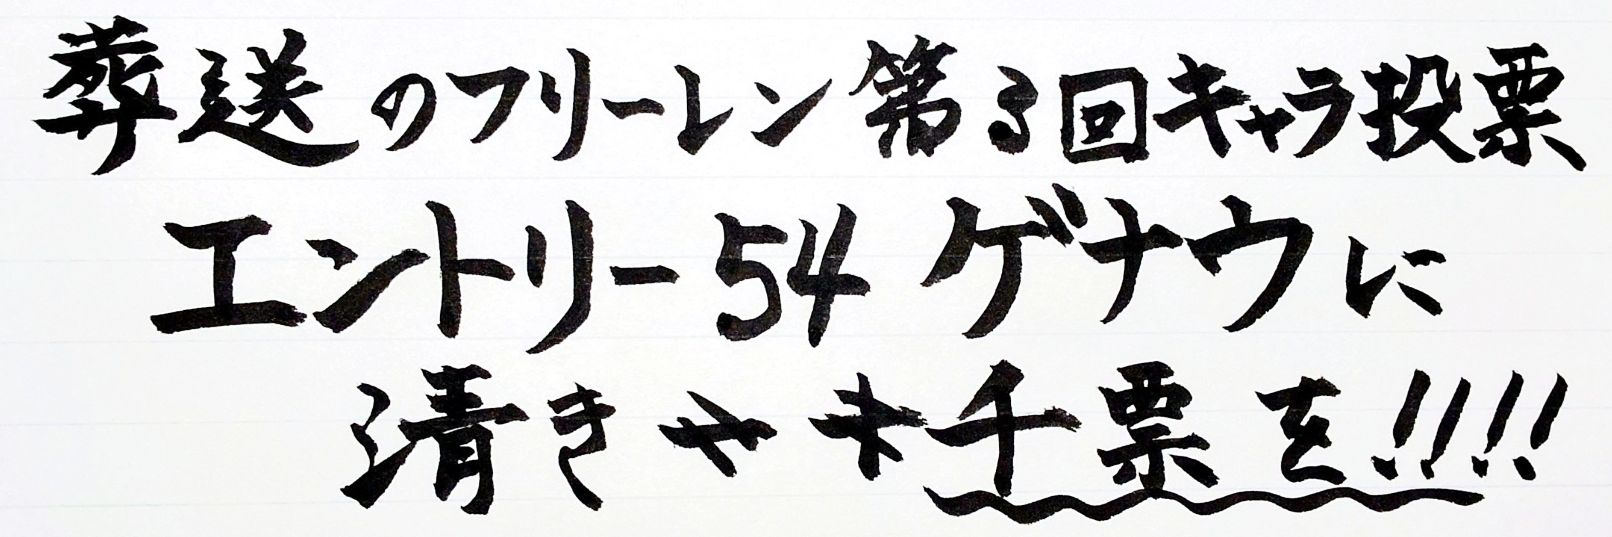 葬送のフリーレン第3回キャラ投票
エントリー54 ゲナウに
清き千票を!!!!